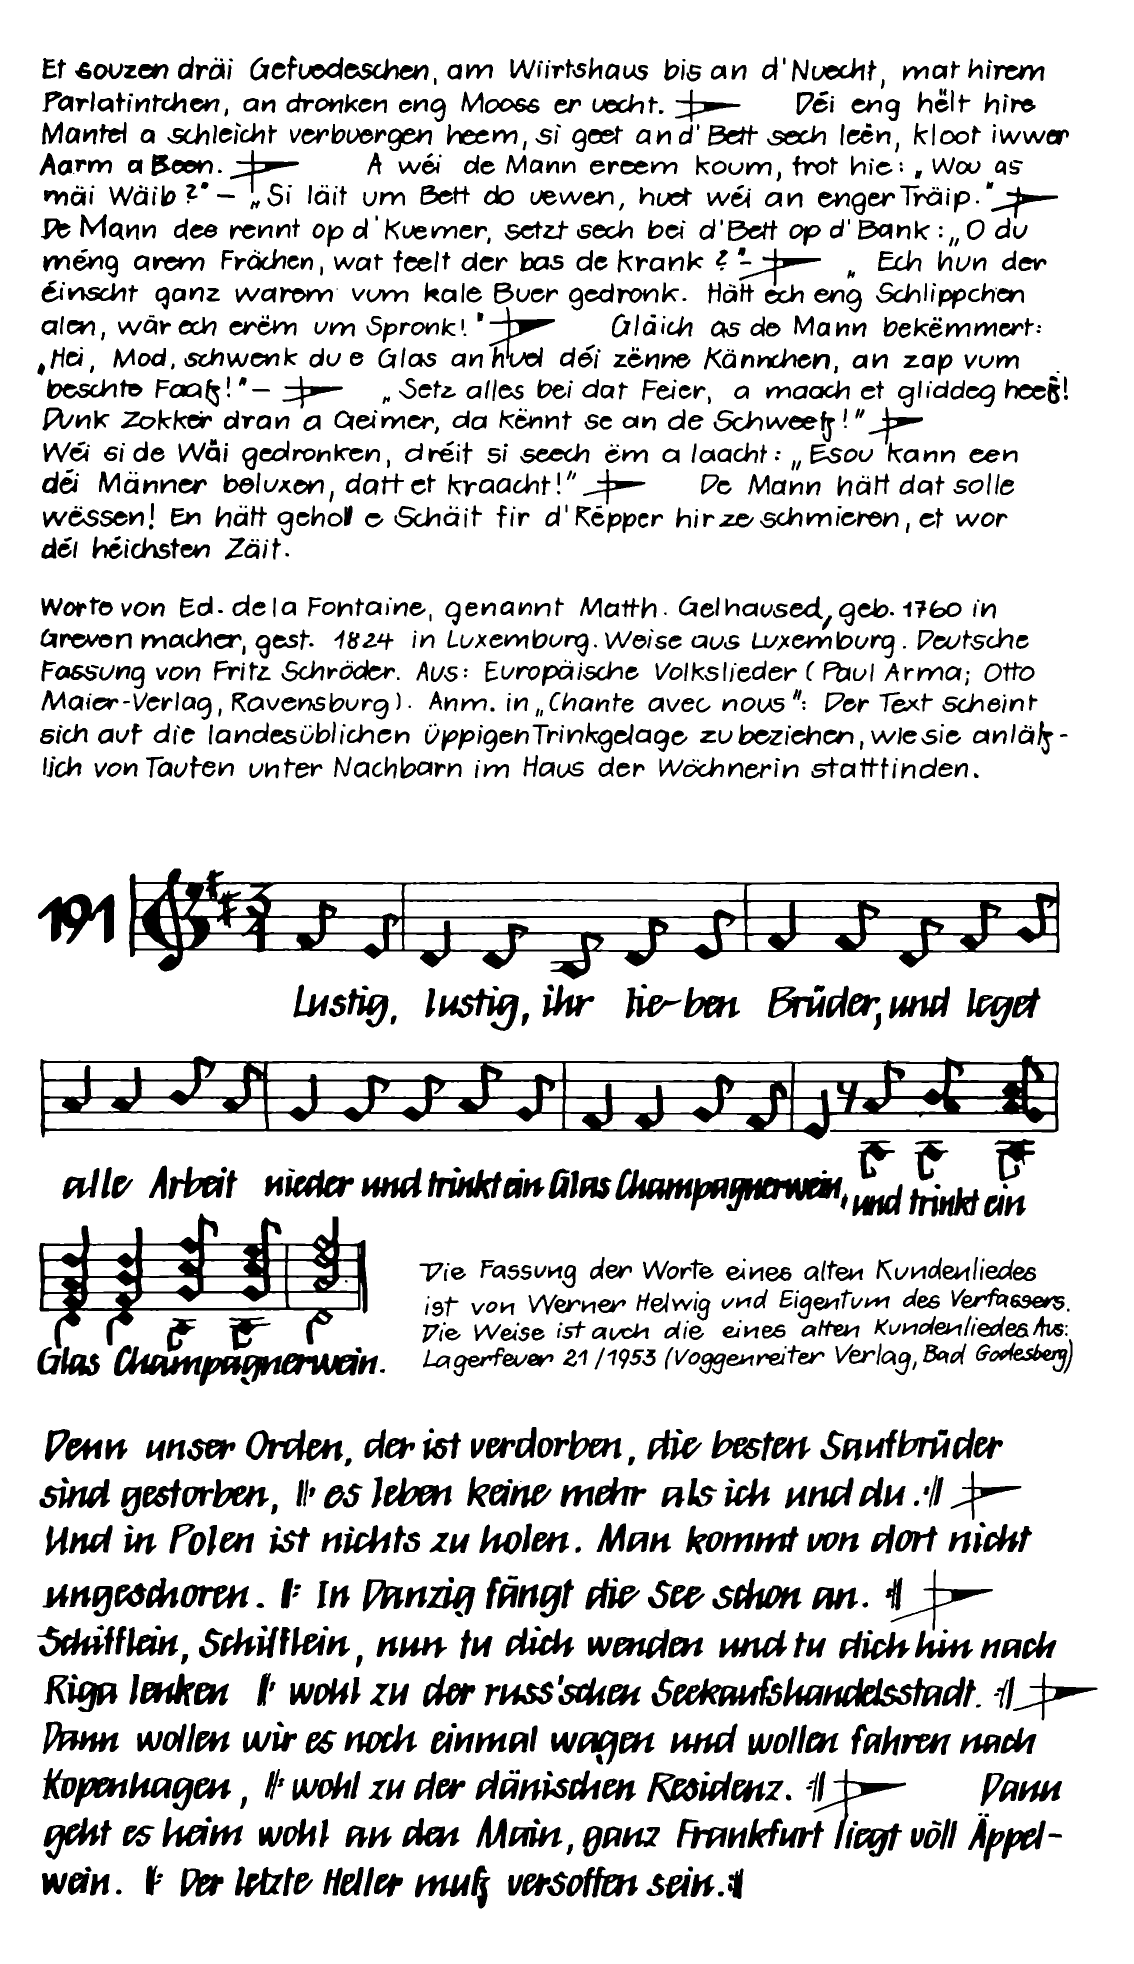 Et souzen dräi Gefuedeschen, am Wiirtshaus bis an d'Nuecht, mat hirem
Parlatintchen, an dronken eng Mooss er uecht. Déi eng hëlt hire
Mantel a schleicht verbuergen heem, si geet an d'Bett sech leën, kloot iwwer
Aarm a Been. A wéi de Mann ereem koum, frot hie: „Wou as
mäi Wäib?" – „Si läit um Bett do uewen, huet wéi an enger Träip."
De Mann dee rennt op d'Kuemer, setzt sech bei d'Bett op d'Bank: „O du
méng arem Frächen, wat feelt der bas de krank?" – „Ech hun der
éinscht ganz warem vum kale Buer gedronk. Hätt ech eng Schlippchen
alen, wär ech erëm um Spronk!" Gläich as de Mann bekëmmert:
„Hei, Mod, schwenk du e Glas an huel déi zënne Kännchen, an zap vum
beschte Faaß!" – „Setz alles bei dat Feier, a maach et gliddeg heeß!
Dunk Zokker dran a Geimer, da kënnt se an de Schweeß!"
Wéi si de Wäi gedronken, dréit si seech ëm a laacht: „Esou kann een
déi Männer beluxen, datt et kraacht!" De Mann hätt dat solle
wëssen! En hätt geholl e Schäit fir d'Rëpper hir ze schmieren, et wor
déi héichsten Zäit.
Worte von Ed. de la Fontaine, genannt Matth. Gelhaused, geb. 1760 in
Greven macher, gest. 1824 in Luxemburg. Weise aus Luxemburg. Deutsche
Fassung von Fritz Schröder. Aus: Europäische Volkslieder (Paul Arma; Otto
Maier-Verlag, Ravensburg). Anm. in „Chante avec nous": Der Text scheint
sich auf die landesüblichen üppigen Trinkgelage zu beziehen, wie sie anläß-
lich von Taufen unter Nachbarn im Haus der Wöchnerin stattfinden.
191
3
4
Lustig, lustig, ihr lie-ben Brüder, und leget
alle Arbeit nieder und trinkt ein Glas Champagnerwein, und trinkt ein
Glas Champagnerwein.
Die Fassung der Worte eines alten Kundenliedes
ist von Werner Helwig und Eigentum des Verfassers.
Die Weise ist auch die eines alten Kundenliedes Aus:
Lagerfeuer 21/1953 (Voggenreiter Verlag, Bad Godesberg)
Denn unser Orden, der ist verdorben, die besten Saufbrüder
sind gestorben, ‖: es leben keine mehr als ich und du. :‖
Und in Polen ist nichts zu holen. Man kommt von dort nicht
ungeschoren. ‖: In Danzig fängt die See schon an. :‖
Schifflein, Schifflein, nun tu dich wenden und tu dich hin nach
Riga lenken ‖: wohl zu der russ'schen Seekaufshandelsstadt. :‖
Dann wollen wir es noch einmal wagen und wollen fahren nach
Kopenhagen, ‖: wohl zu der dänischen Residenz. :‖ Dann
geht es heim wohl an den Main, ganz Frankfurt liegt völl Äppel-
wein. ‖: Der letzte Heller muß versoffen sein. :‖